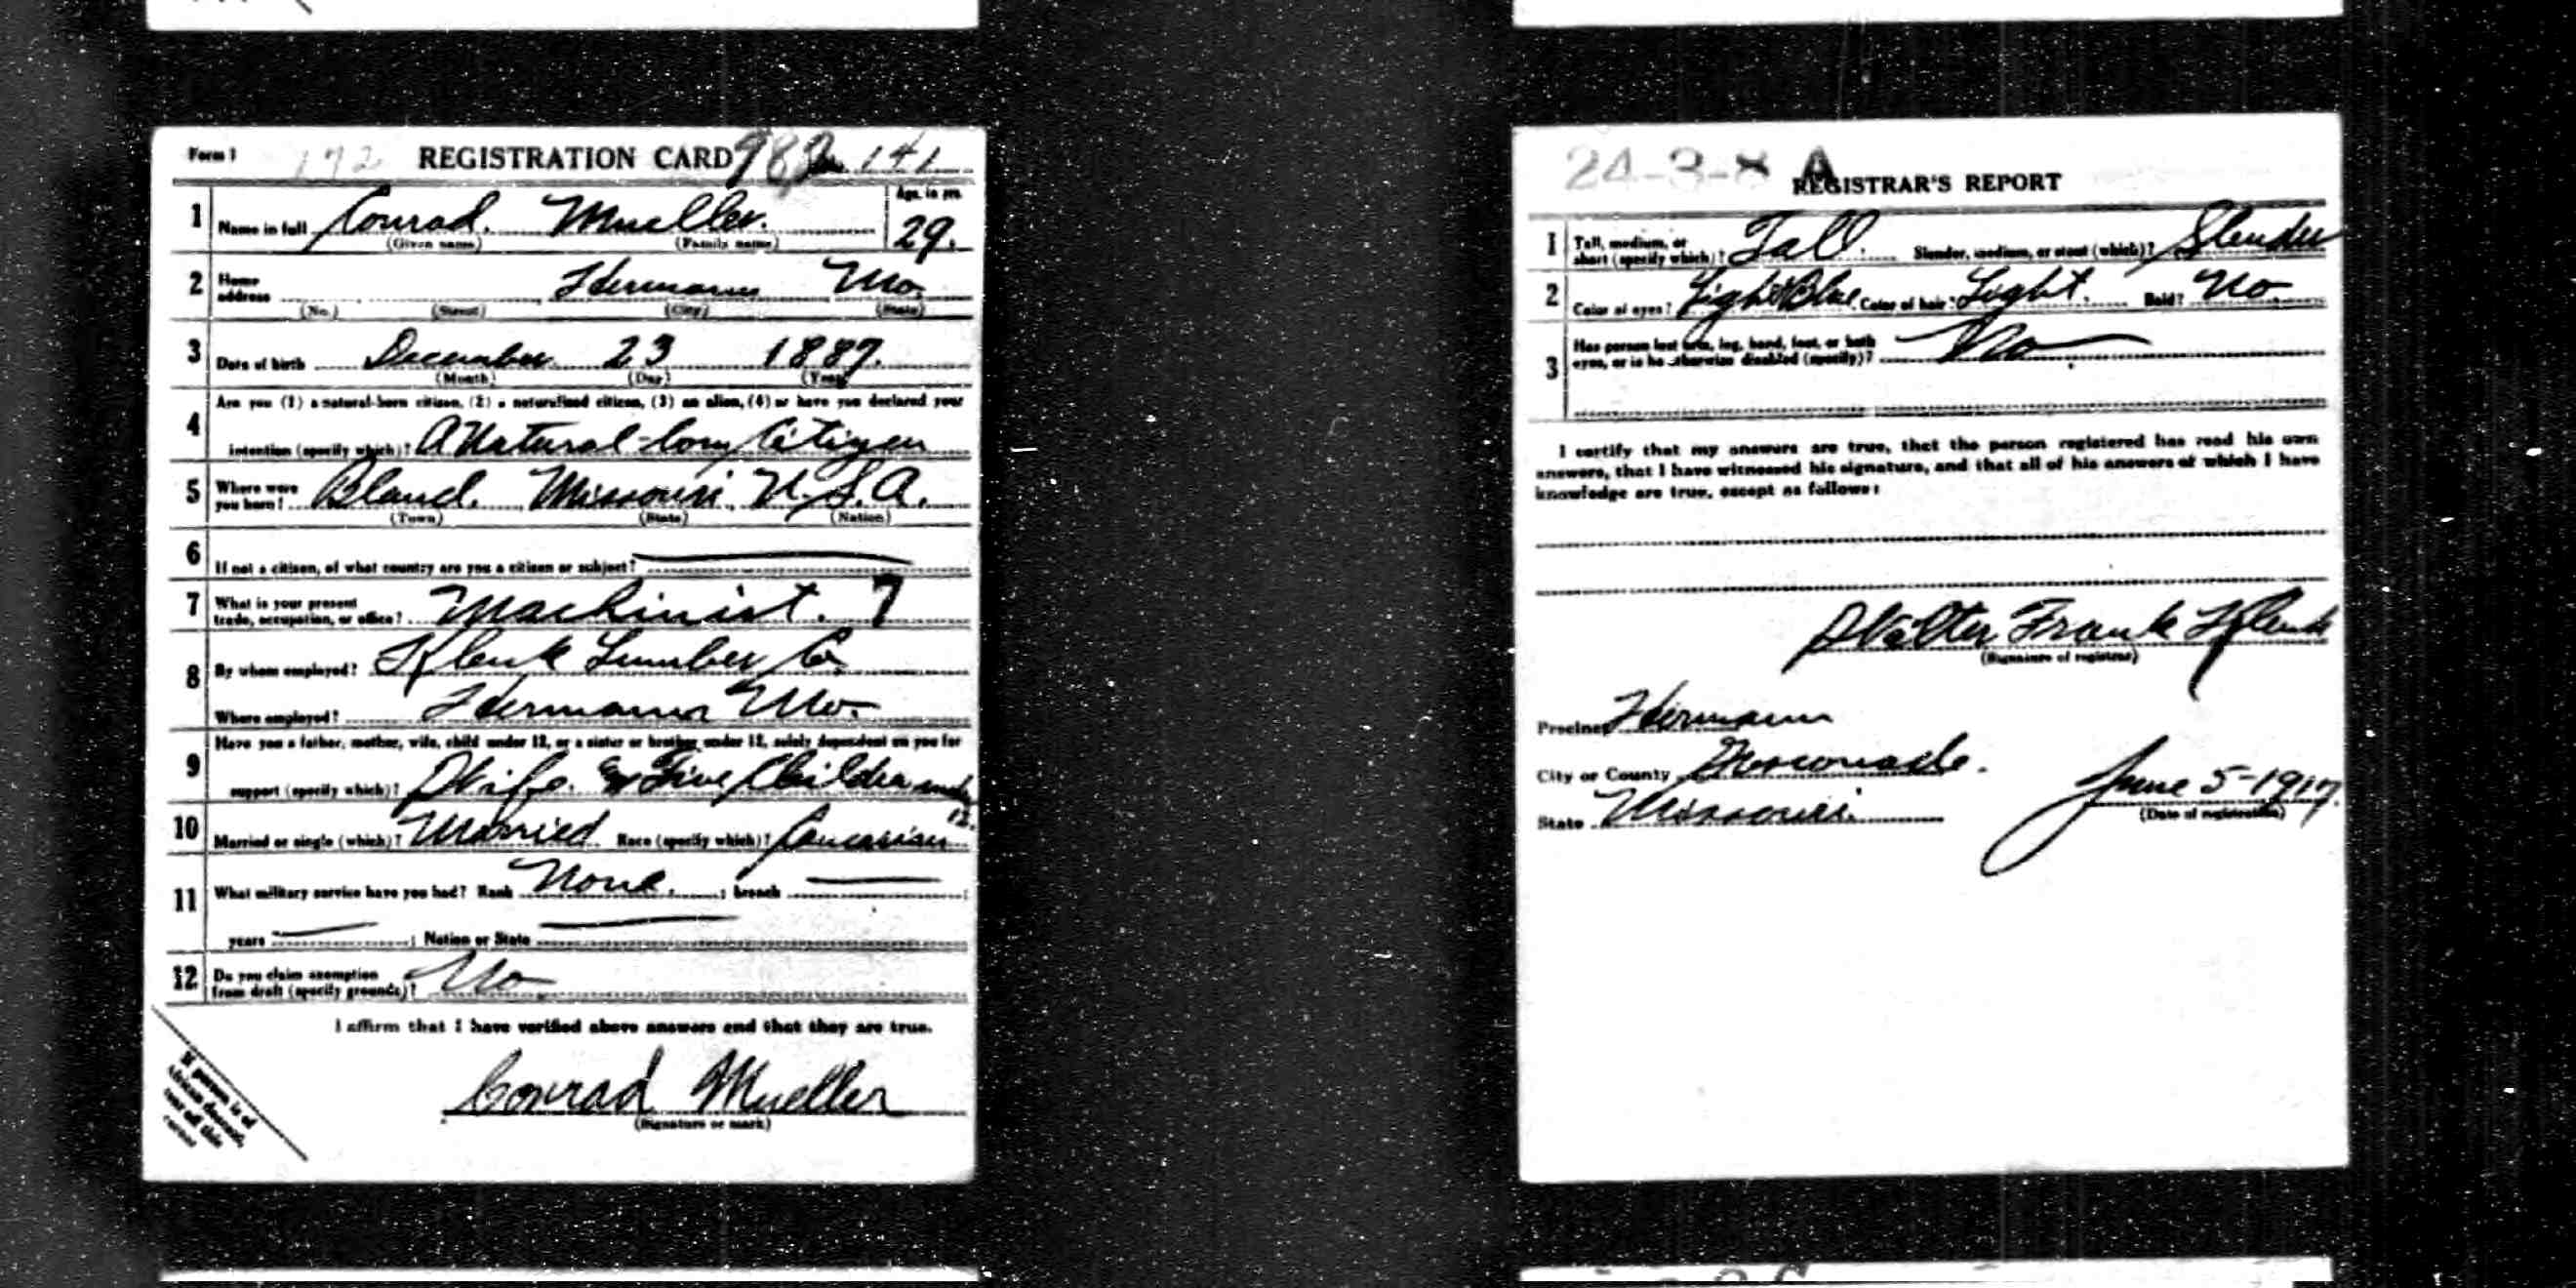 Form 1 172 REGISTRATION CARD 982 No. 141
1 Name in full Conrad. Mueller. Age, in yrs. 29.
(Given name) (Family name)
2 Home address Hermann Mo.
(No.) (Street) (City) (State)
3 Date of birth December 23 1887.
(Month) (Day) (Year)
Are you (1) a natural-born citizen, (2) a naturalized citizen, (3) an alien, (4) or have you declared your
4 intention (specify which)? A Natural-born Citizen
5 Where were you born? Bland. Missouri. U.S.A.
(Town) (State) (Nation)
6 If not a citizen, of what country are you a citizen or subject?
7 What is your present trade, occupation, or office? Machinist. 7
8 By whom employed? Klenk Lumber Co.
Where employed? Hermann Mo.
Have you a father, mother, wife, child under 12, or a sister or brother under 12, solely dependent on you for
9 support (specify which)? Wife. & Five Children under 12.
10 Married or single (which)? Married Race (specify which)? Caucasian
11 What military service have you had? Rank None. ; branch ;
years ; Nation or State
12 Do you claim exemption from draft (specify grounds)? No
I affirm that I have verified above answers and that they are true.
Conrad Mueller
(Signature or mark)
If person is of
African descent,
tear off this
corner
24-3-8 A
REGISTRAR'S REPORT
1 Tall, medium, or short (specify which)? Tall. Slender, medium, or stout (which)? Slender
2 Color of eyes? Light Blue. Color of hair? Light. Bald? No
3 Has person lost arm, leg, hand, foot, or both eyes, or is he otherwise disabled (specify)? No
I certify that my answers are true, that the person registered has read his own
answers, that I have witnessed his signature, and that all of his answers of which I have
knowledge are true, except as follows:
Walter Frank Klenk
(Signature of registrar)
Precinct Hermann
City or County Gasconade.
State Missouri. June 5-1917.
(Date of registration)